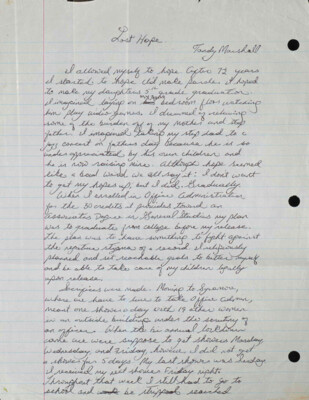 Lost Hope
Tandy Marshall
I allowed myself to hope. After 12 years
I started to hope I'd make parole. I hoped
to make my daughters 5th grade graduation.
I imagined laying on his bedroom floor watching
him play audio games. I dreamed of relieving
some of the burden off of my mother and step
father. I imagined taking my step dad to a
jazz concert on fathers day because he is so
unappreciated by his own children and
he is now raising mine. Although hope seemed
like a bad word we all say it: I don't want
to get my hopes up, but I did. Gradually.
When I enrolled in Office Administration
for the 30 credits it provides toward an
Associates Degree in General Studies my plan
was to graduate from college before my release.
The plan was to have something to fight against
the negative stigma of a record. I independently
planned and set reachable goals to better myself
and be able to take care of my children legally
upon release.
Sacrifices were made. Moving to Sycamore,
where we have to live to take Office Admin,
meant one shower a day with 19 other women
in an outside building under the scrutiny of
an officer. When the bi annual lockdown
came we were suppose to get showers Monday,
Wednesday and Friday, however I did not get
a shower for 5 days. My last shower was Sunday.
I received my next shower Friday night.
Throughout that week I still had to go to
school and be stripped searched